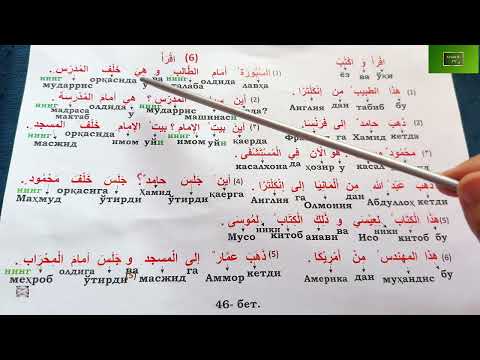 (6) اقْرَأْ
اقْرَأْ وَ اكْتُبْ
ёз ва ўқи
(1) السَّبُّورَةُ أَمَامَ الطَّالِبِ وَ هِيَ خَلْفَ المُدَرِّسِ .
нинг орқасида ва нинг олдида лавҳа
мударрис у талаба
(1) هَذَا الطَّبِيبُ مِنْ إِنْكِلْتَرَا.
Англия дан табиб бу
(2) أَيْنَ سَيَّارَةُ المُدَرِّسِ؟ هِيَ أَمَامَ المَدْرَسَةِ.
мактаб олдида у машинаси
(2) ذَهَبَ حَامِدٌ إِلَى فَرَنْسَا.
га Ҳамид кетди
(3) أَيْنَ بَيْتُ الإِمَامِ؟ بَيْتُ الإِمَامِ خَلْفَ المَسْجِدِ.
масжид имом уйи имом уйи қаерда
(3) مَحْمُودٌ هُوَ الآنَ فِي الْمُسْتَشْفَى.
касалхона да ҳозир у касал
(4) أَيْنَ جَلَسَ حَامِدٌ؟ جَلَسَ خَلْفَ مَحْمُودٍ.
нинг орқасига ўтирди Ҳамид қаерга
Маҳмуд ўтирди
(4) ذَهَبَ عَبْدُ اللهِ مِنْ أَلْمَانِيَا إِلَى إِنْكِلْتَرَا.
Англия га Олмония дан Абдуллоҳ кетди
(5) هَذَا الْكِتَابُ لِعِيسَى وَ ذَلِكَ الْكِتَابُ لِمُوسَى.
Мусо ники китоб анави ва Исо ники китоб бу
(5) ذَهَبَ عَمَّارٌ إِلَى الْمَسْجِدِ وَ جَلَسَ أَمَامَ الْمِحْرَابِ.
нинг олдига ва га кетди
меҳроб ўтирди масжид Аммор
(6) هَذَا الْمُهَنْدِسُ مِنْ أَمْرِيكَا.
Америка дан муҳандис бу
46- бет.